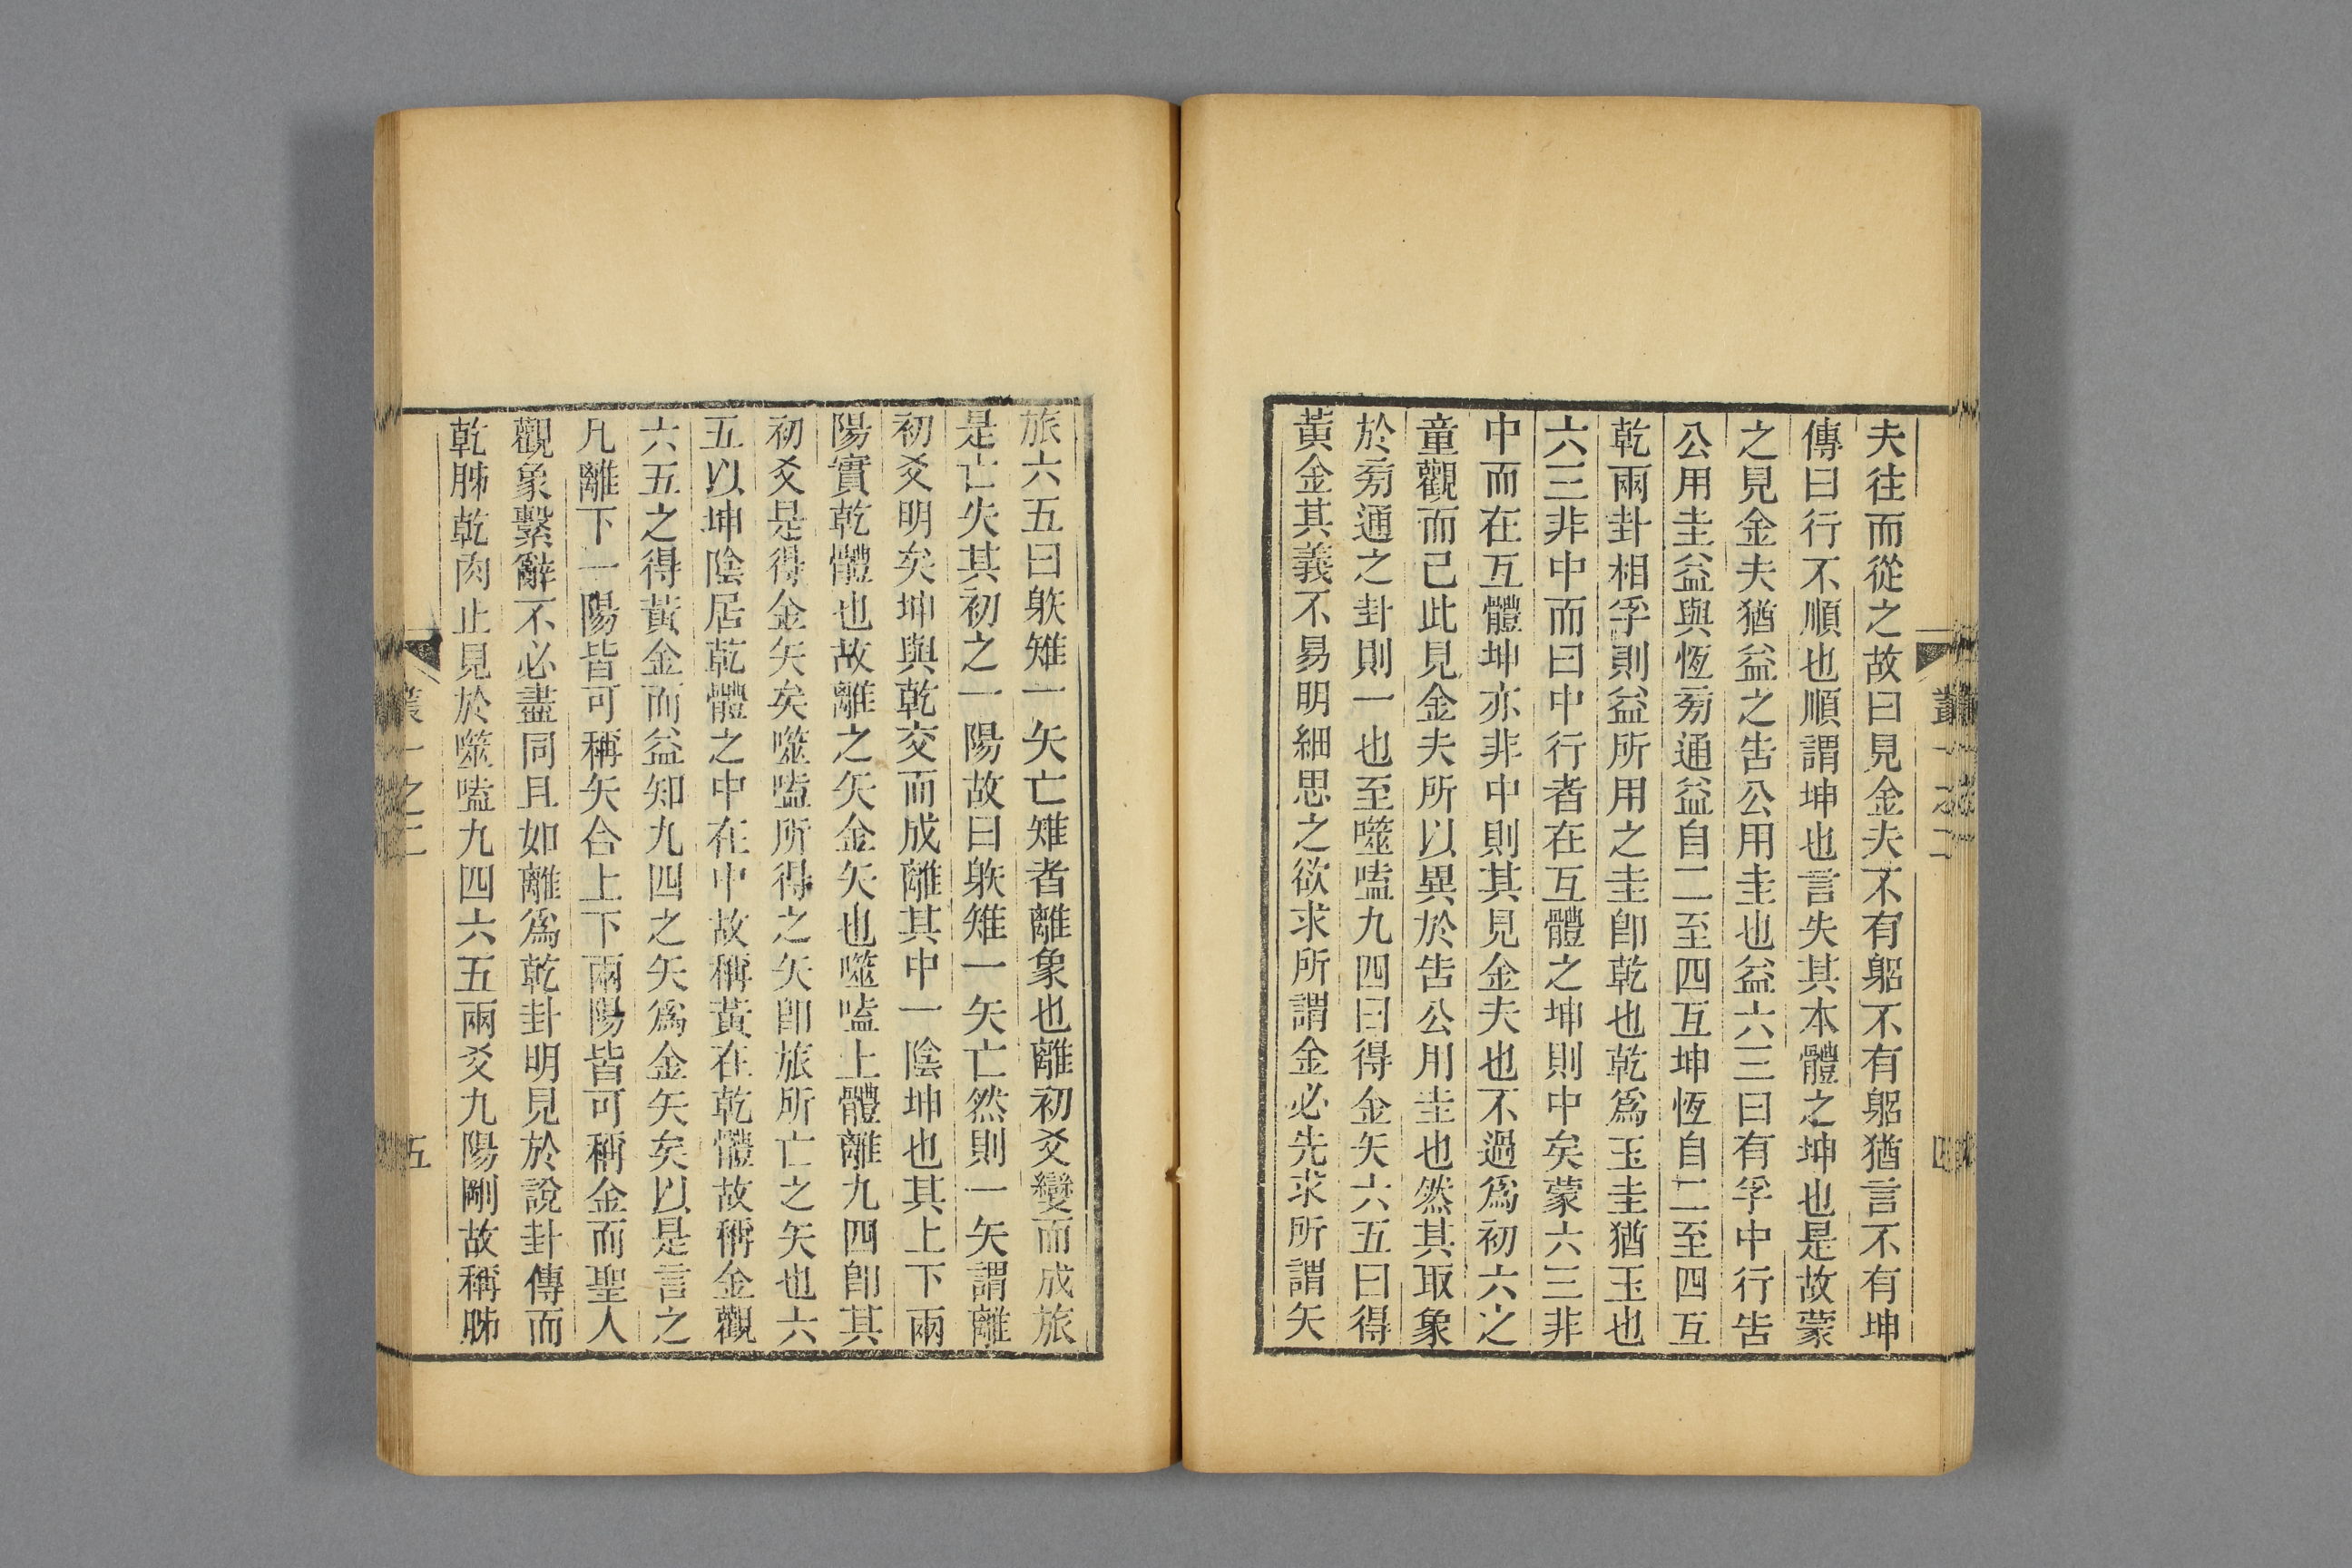 夫往而從之故曰見金夫不有躳不有躳猶言不有坤
傳曰行不順也順謂坤也言失其本體之坤也是故蒙
之見金夫猶益之告公用圭也益六三曰有孚中行告
公用圭益與恆旁通益自二至四互坤恆自二至四互
乾兩卦相孚則益所用之圭卽乾也乾爲玉圭猶玉也
六三非中而曰中行者在互體之坤則中矣蒙六三非
中而在互體坤亦非中則其見金夫也不過爲初六之
童觀而已此見金夫所以異於告公用圭也然其取象
於旁通之卦則一也至噬嗑九四曰得金矢六五曰得
黃金其義不易明細思之欲求所謂金必先求所謂矢
叢一之二
四
旅六五曰䠶雉一矢亡雉者離象也離初爻變而成旅
是亡失其初之一陽故曰䠶雉一矢亡然則一矢謂離
初爻明矣坤與乾交而成離其中一陰坤也其上下兩
陽實乾體也故離之矢金矢也噬嗑上體離九四卽其
初爻是得金矢矣噬嗑所得之矢卽旅所亡之矢也六
五以坤陰居乾體之中在中故稱黃在乾體故稱金觀
六五之得黃金而益知九四之矢爲金矢矣以是言之
凡離下一陽皆可稱矢合上下兩陽皆可稱金而聖人
觀象繫辭不必盡同且如離爲乾卦明見於說卦傳而
乾胏乾肉止見於噬嗑九四六五兩爻九陽剛故稱胏
叢一之二
五